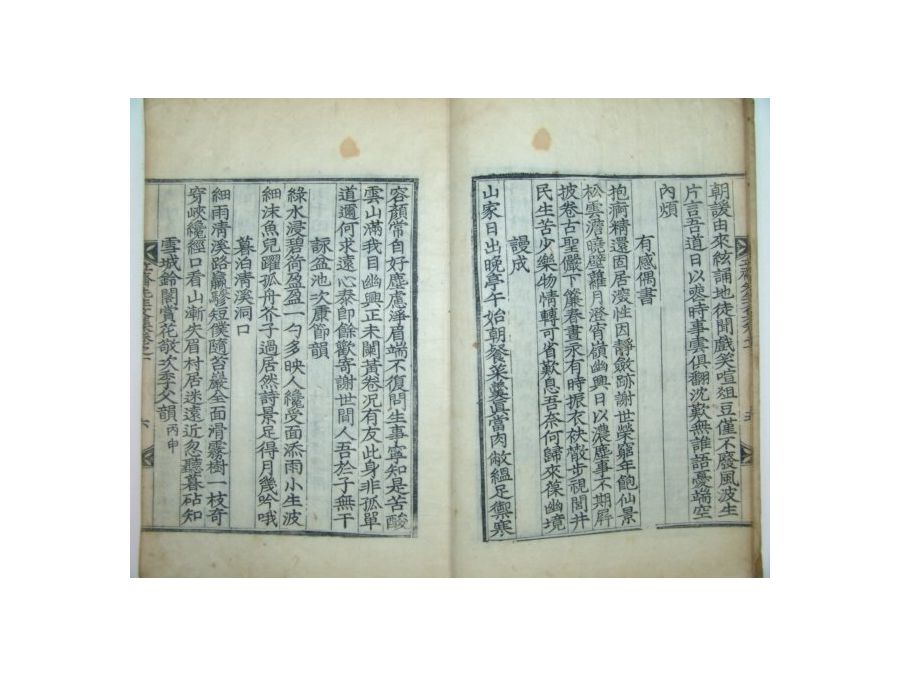 朝諼由來絃誦地徒聞戲笑喧俎豆僅不廢風波生
片言吾道日以喪時事雲俱翻沈歎無誰語憂端空
內煩
有感偶書
抱痾精還固居深性因靜斂跡謝世榮窮年飽仙景
松雲澹曉壁蘿月澄宵嶺幽興日以濃塵事不期屛
披卷古聖儼下簾春晝永有時振衣袂散步視閭井
民生苦少樂物情轉可省歎息吾奈何歸來葆幽境
謾成
山家日出晩亭午始朝餐菜羹眞當肉敝縕足禦寒
容顏常自好塵慮淨眉端不復問生事寧知是苦酸
雲山滿我目幽興正未闌黃卷況有友此身非孤單
道邇何求遠心泰卽餘歡寄謝世間人吾於子無干
詠盆池次康節韻
綠水浸碧荷盈盈一勺多映人纔受面添雨小生波
細沫魚兒躍孤舟芥子過居然詩景足得月幾吟哦
暮泊淸溪洞口
細雨淸溪路羸驂短僕隨苔巖全面滑霧樹一枝奇
穿峽纔經口看山漸失眉村居迷遠近忽聽暮砧知
雪城鈴閣賞花敬次季父韻丙申